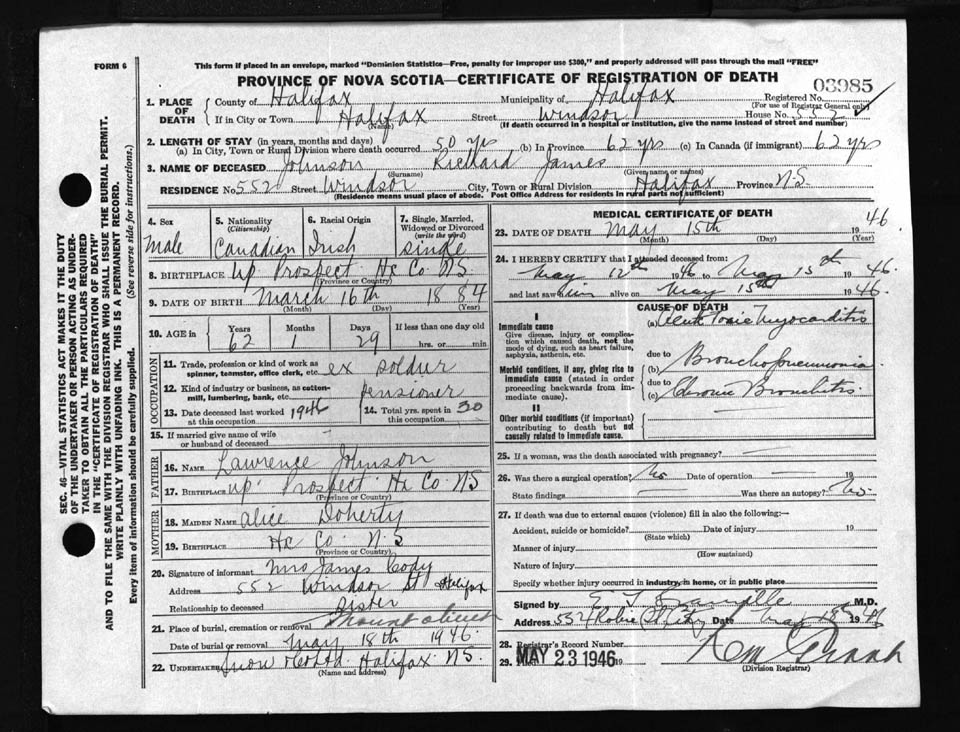 FORM 6
This form if placed in an envelope, marked "Dominion Statistics—Free, penalty for improper use $300," and properly addressed will pass through the mail "FREE"
PROVINCE OF NOVA SCOTIA—CERTIFICATE OF REGISTRATION OF DEATH
03985
1. PLACE OF DEATH { County of Halifax Municipality of Halifax Registered No.
(For use of Registrar General only)
If in City or Town Halifax Street Windsor House No. 552
(Name) (If death occurred in a hospital or institution, give the name instead of street and number)
2. LENGTH OF STAY (in years, months and days)
(a) In City, Town or Rural Division where death occurred 50 yrs (b) In Province 62 yrs (c) In Canada (if immigrant) 62 yrs
3. NAME OF DECEASED Johnson Richard James
(Surname) (Given name or names)
RESIDENCE No. 552 Street Windsor City, Town or Rural Division Halifax Province N.S.
(Residence means usual place of abode. Post Office Address for residents in rural parts not sufficient)
4. Sex
Male
5. Nationality
(Citizenship)
Canadian
6. Racial Origin
Irish
7. Single, Married, Widowed or Divorced
(write the word)
single
8. BIRTHPLACE Up. Prospect Hx Co N S
(Province or Country)
9. DATE OF BIRTH March 16th 1884
(Month) (Day) (Year)
10. AGE in { Years Months Days If less than one day old
62 1 29 hrs. or min
OCCUPATION
11. Trade, profession or kind of work as spinner, teamster, office clerk, etc. ex soldier
12. Kind of industry or business, as cotton-mill, lumbering, bank, etc. Pensioner
13. Date deceased last worked at this occupation 1946
14. Total yrs. spent in this occupation 30
15. If married give name of wife or husband of deceased
FATHER
16. NAME Lawrence Johnson
17. BIRTHPLACE up. Prospect Hx Co. N S
(Province or Country)
MOTHER
18. MAIDEN NAME Alice Doherty
19. BIRTHPLACE Hx Co. N. S
(Province or Country)
20. Signature of informant Mrs James Cody
Address 552 Windsor St Halifax
Relationship to deceased Sister
21. Place of burial, cremation or removal Mount Olivet
Date of burial or removal May 18th 1946
22. UNDERTAKER Snow & Co Ltd. Halifax N.S.
(Name and address)
MEDICAL CERTIFICATE OF DEATH
23. DATE OF DEATH May 15th 1946
(Month) (Day) (Year)
24. I HEREBY CERTIFY that I attended deceased from:
May 12th 1946 to May 15th 1946
and last saw him alive on May 15th 1946.
CAUSE OF DEATH
I
Immediate cause
Give disease, injury or complication which caused death, not the mode of dying, such as heart failure, asphyxia, asthenia, etc.
(a) Acute Toxic Myocarditis
due to
Morbid conditions, if any, giving rise to immediate cause (stated in order proceeding backwards from immediate cause).
(b) Bronchopneumonia
due to
(c) Chronic Bronchitis
II
Other morbid conditions (if important) contributing to death but not causally related to immediate cause.
25. If a woman, was the death associated with pregnancy?
26. Was there a surgical operation? No Date of operation 19
State findings Was there an autopsy? No.
27. If death was due to external causes (violence) fill in also the following:—
Accident, suicide or homicide? Date of injury 19
(State which)
Manner of injury
(How sustained)
Nature of injury
Specify whether injury occurred in industry, in home, or in public place
Signed by M.D.
Address 534 Robie St City Date May 1946
28. Registrar's Record Number
29. MAY 23 1946 19
(Division Registrar)
SEC. 46—VITAL STATISTICS ACT MAKES IT THE DUTY OF THE UNDERTAKER OR PERSON ACTING AS UNDERTAKER TO OBTAIN ALL THE PARTICULARS REQUIRED IN THE "CERTIFICATE OF REGISTRATION OF DEATH" AND TO FILE THE SAME WITH THE DIVISION REGISTRAR WHO SHALL ISSUE THE BURIAL PERMIT.
WRITE PLAINLY WITH UNFADING INK. THIS IS A PERMANENT RECORD.
Every item of information should be carefully supplied. (See reverse side for instructions.)